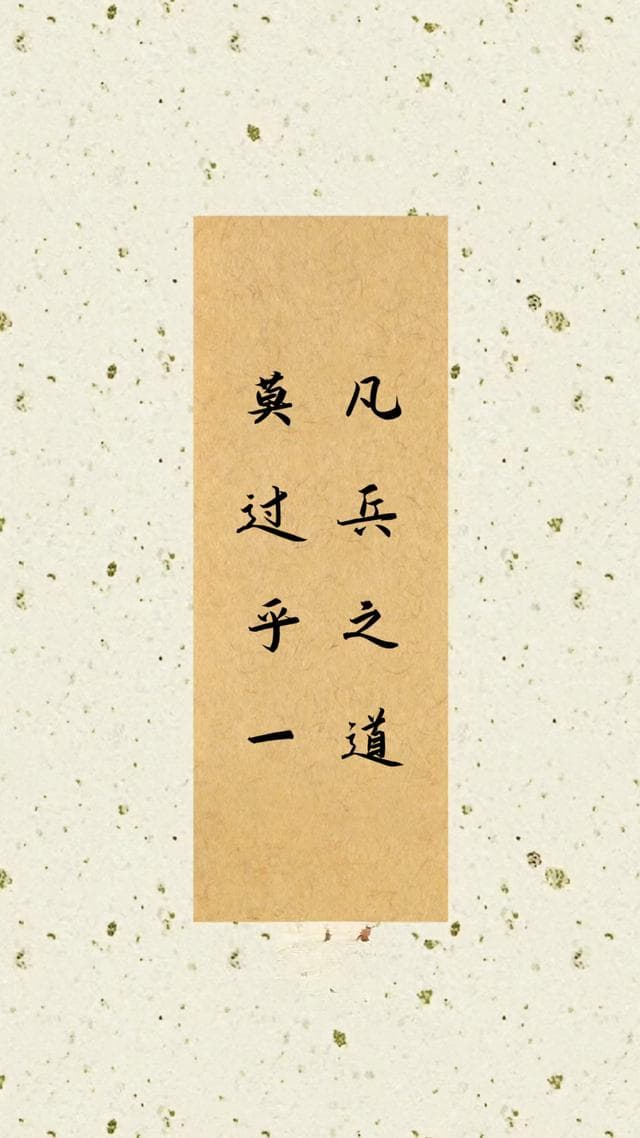 凡兵之道
莫过乎一